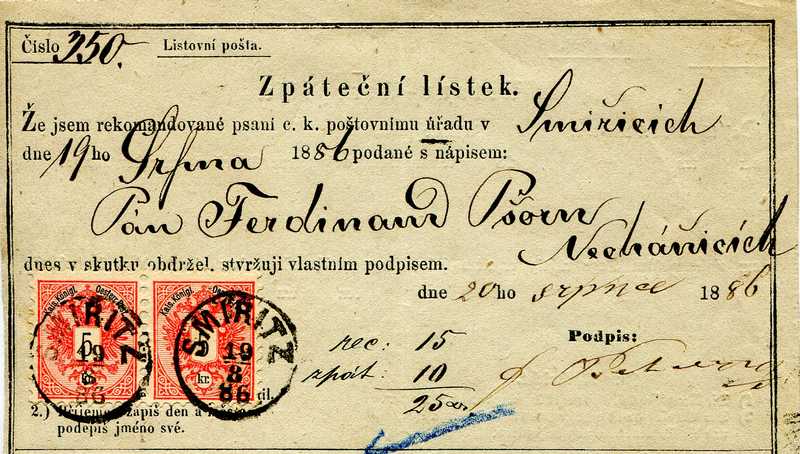 Číslo 350. Listovní pošta.
Zpáteční lístek.
Že jsem rekomandované psaní c. k. poštovnímu úřadu v Smiřicích
dne 19ho Srpna 1886 podané s nápisem:
Pán Ferdinand Pšorn
Nechánicích
dnes v skutku obdržel, stvrzuji vlastním podpisem.
dne 20 ho srpna 1886
Podpis:
rec: 15
zpát: 10
25
Kais. Königl. Oesterr. Post
5
kr.
SMIRITZ
19
8
86
Kais. Königl. Oesterr. Post
kr.
SMIRITZ
19
8
86
2.) Příjemce zapiš den a
podepiš jméno své.